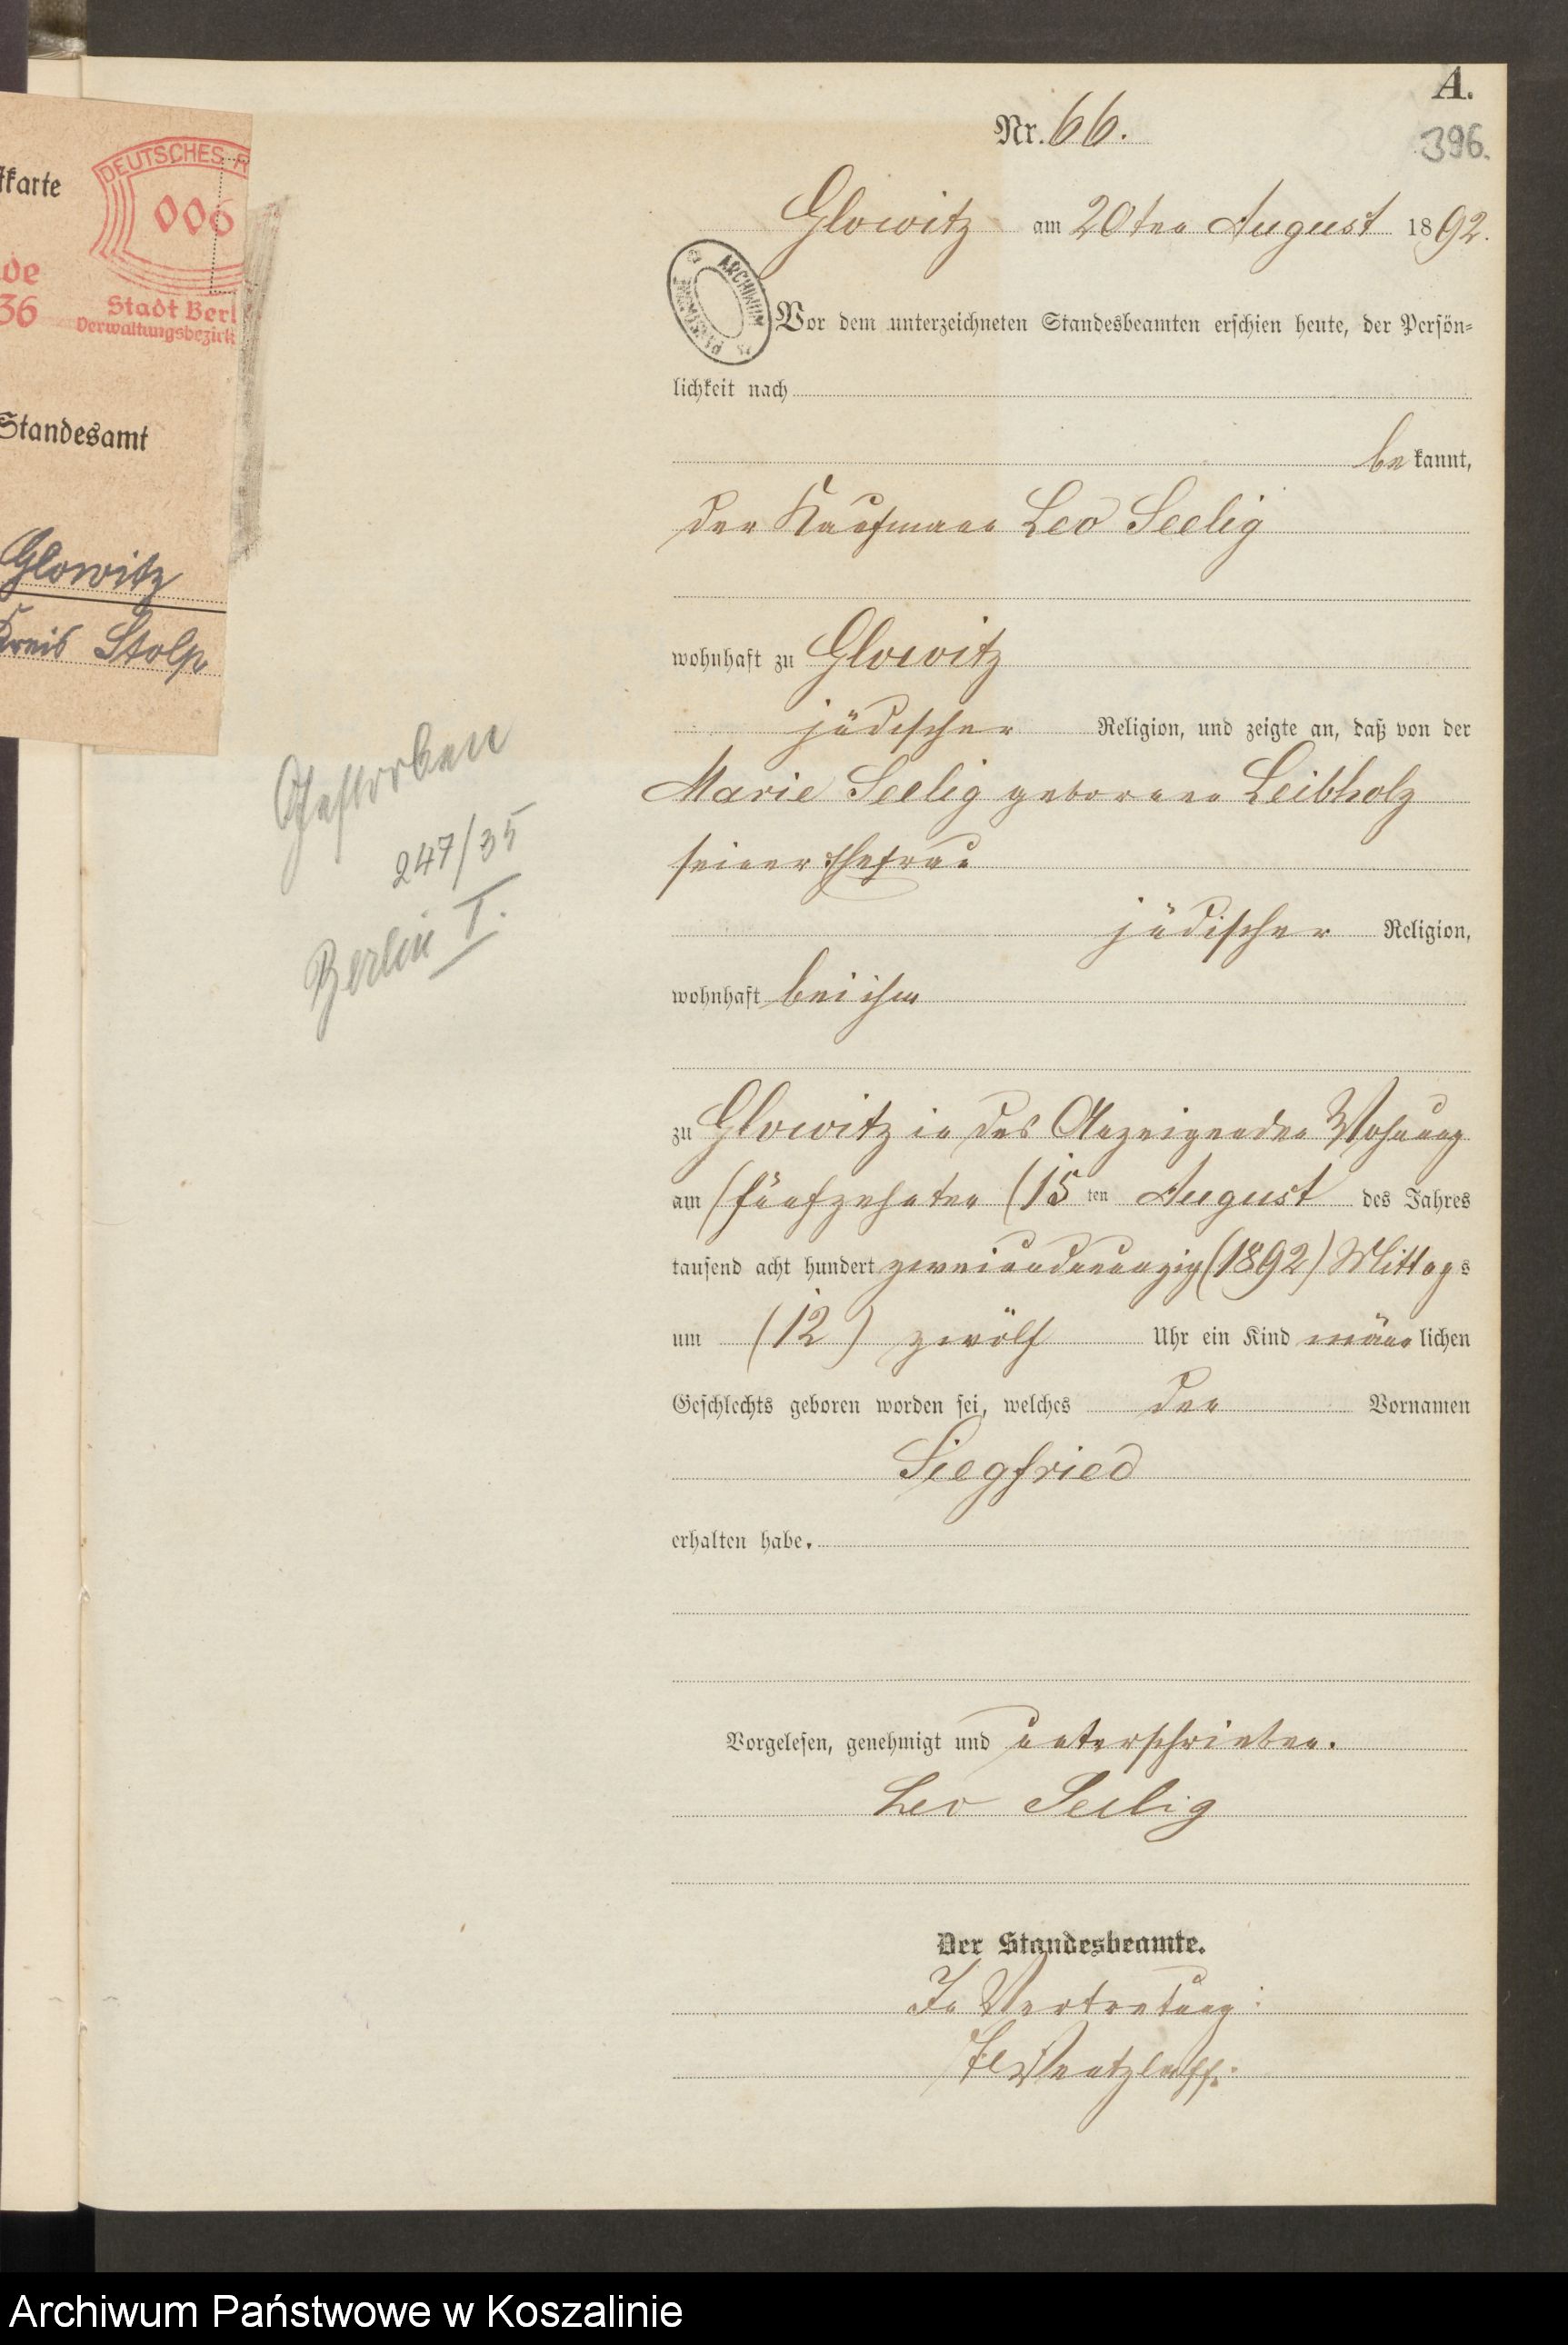 A.
Nr. 66.
396.
Glowitz am 20ten August 1892.
Vor dem unterzeichneten Standesbeamten erschien heute, der Persön=
lichkeit nach
bekannt,
der Kaufmann Leo Seelig
wohnhaft zu Glowitz
jüdischer Religion, und zeigte an, daß von der
Marie Seelig geborene Leibholz
seiner Ehefrau
jüdischer Religion,
wohnhaft bei ihm
zu Glowitz in des Anzeigenden Wohnung
am (fünfzehnten (15 ten August des Jahres
tausend acht hundert zweiundneunzig (1892) Mittags
um (12) zwölf Uhr ein Kind männlichen
Geschlechts geboren worden sei, welches den Vornamen
Siegfried
erhalten habe.
Vorgelesen, genehmigt und unterschrieben.
Leo Seelig
Der Standesbeamte.
In Vertretung:
ARCHIWUM
Gestorben
247/35
Berlin I.
tkarte
DEUTSCHES R
006
de
36
Stadt Berl
Verwaltungsbezirk
Standesamt
Glowitz
Kreis Stolp
Archiwum Państwowe w Koszalinie